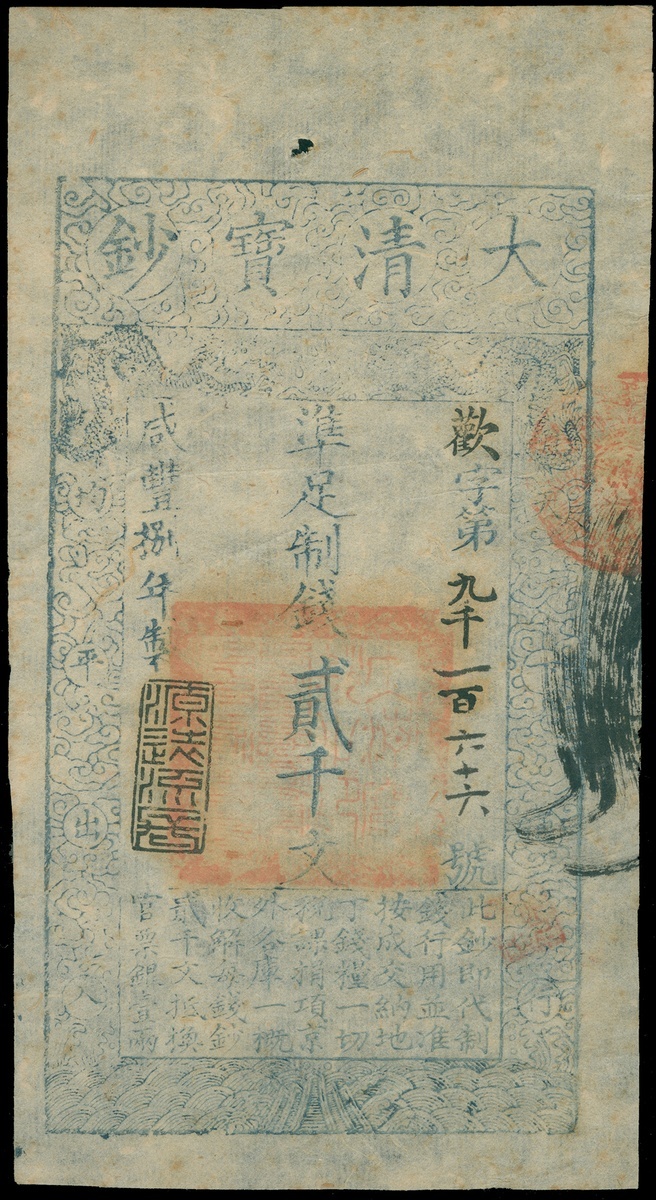 大清寶鈔
天 行
歡字第九千一百六十六號
準足制錢貳千文
咸豐捌年製
均平出入
源遠流長
此鈔即代制
錢行用並准
按成交納地
丁錢糧一切
稅課捐項京
外各庫一概
收解每錢鈔
貳千文抵換
官票銀壹兩